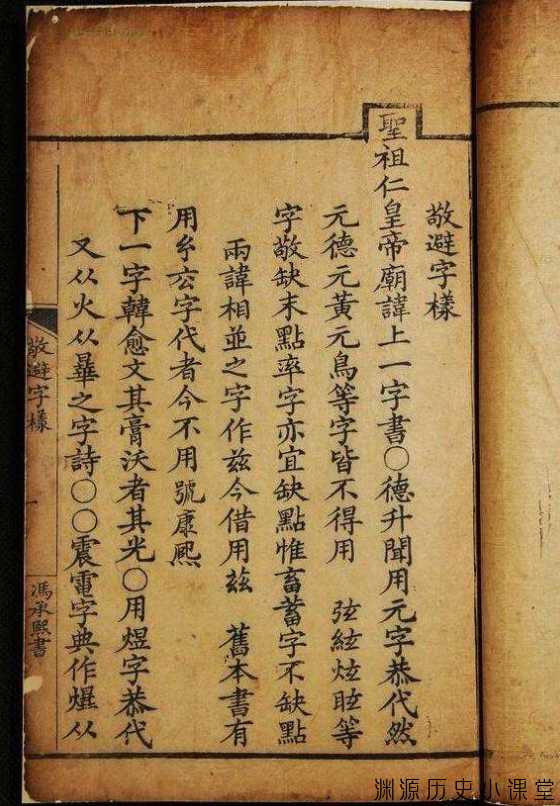 敬避字樣
聖祖仁皇帝廟諱上一字書〇德升聞用元字恭代然
元德元黃元鳥等字皆不得用　弦絃炫眩等
字敬缺末點率字亦宜缺點惟畜蓄字不缺點
兩諱相並之字作兹今借用茲　舊本書有
用字代者今不用號康熙
下一字韓愈文其膏沃者其光〇用煜字恭代
又从火从之字詩〇〇震電字典作从
敬避字樣
一
馮承熙書
渊源历史小课堂